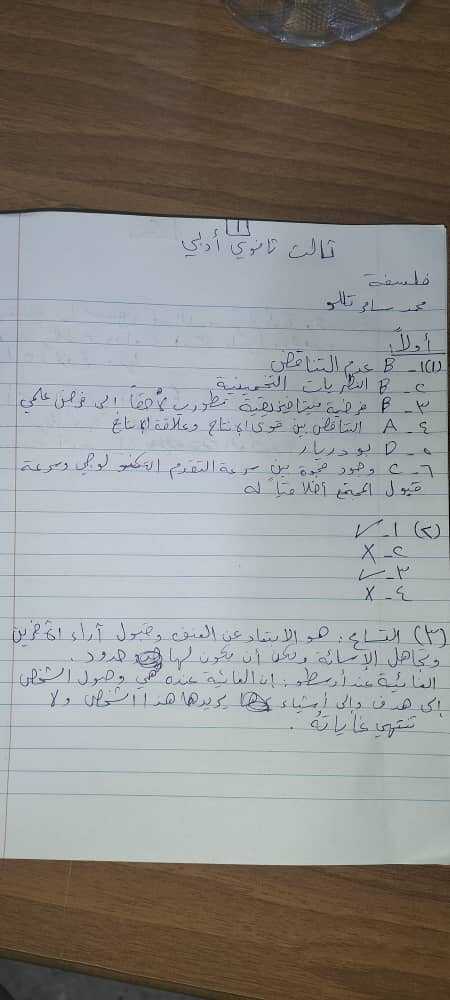 1
ثالث ثانوي أدبي
فلسفة
محمد سامر تللو
أولاً:
(1) 1- B عدم التناقض
2- B النظريات التخمينية
3- B فرضية ميتافيزيقية تطورت لاحقاً الى فرض علمي
4- A التناقض بين قوى الإنتاج وعلاقة الإنتاج
5- D بودريار
6- C وجود فجوة بين سرعة التقدم التكنولوجي وسرعة
قبول المجتمع أخلاقياً له
(2) 1- ✓
2- X
3- ✓
4- X
(3) التسامح: هو الابتعاد عن العنف وقبول آراء الآخرين
وتجاهل الإساءة ولكن أن يكون لها حدود.
الغائية عند أرسطو: إن الغائية عنده هي وصول الشخص
إلى هدف وإلى أشياء يريدها هذا الشخص ولا
تنتهي غاياته.